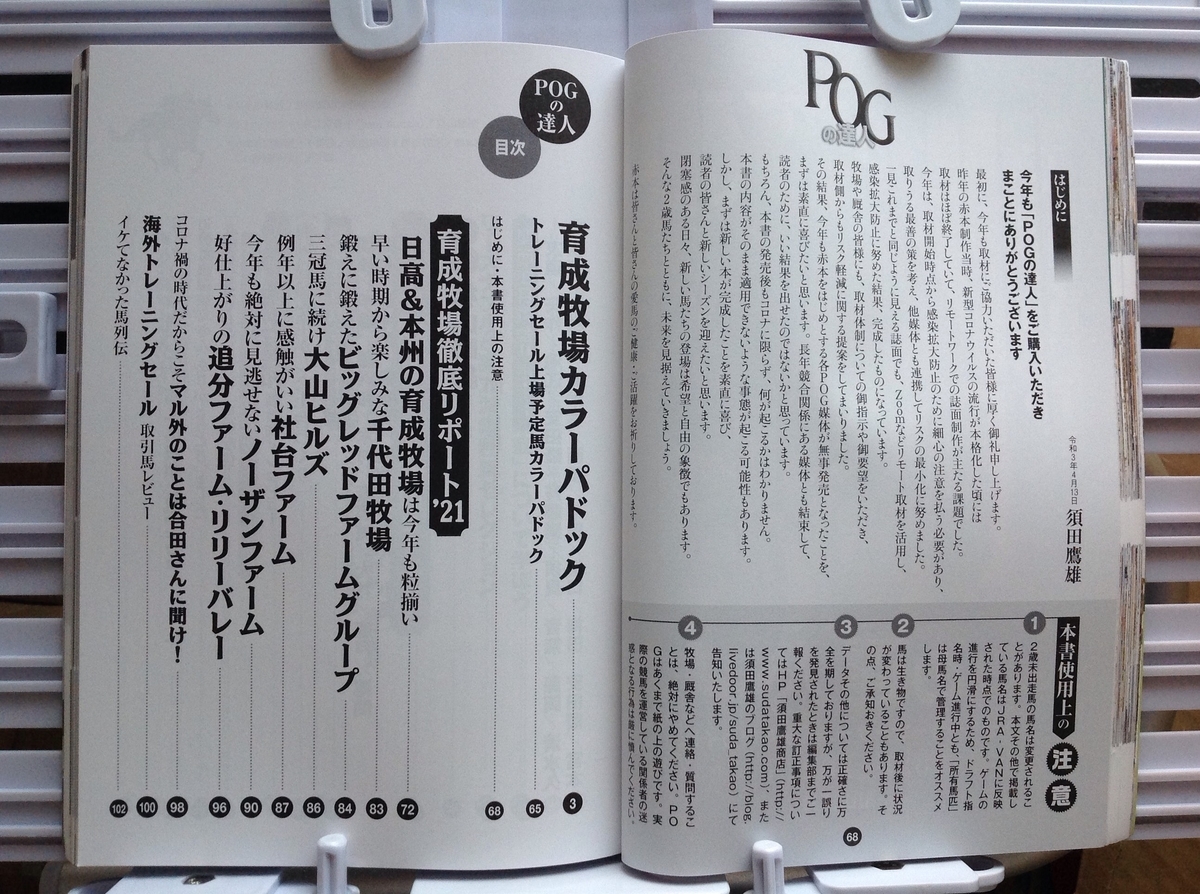 POG
の達人
はじめに
今年も「POGの達人」をご購入いただき
まことにありがとうございます
令和3年4月13日 須田鷹雄
最初に、今年も取材にご協力いただいた皆様に厚く御礼申し上げます。
昨年の赤本制作当時、新型コロナウィルスの流行が本格化した頃には
取材はほぼ終了していて、リモートワークでの誌面制作が主たる課題でした。
今年は、取材開始時点から感染拡大防止のために細心の注意を払う必要があり、
取りうる最善の策を考え、他媒体とも連携してリスクの最小化に努めました。
一見これまでと同じように見える誌面でも、Zoomなどリモート取材を活用し、
感染拡大防止に努めた結果、完成したものになっています。
牧場や厩舎の皆様にも、取材体制についての御指示や御要望をいただき、
取材側からもリスク軽減に関する提案をしてまいりました。
その結果、今年も赤本をはじめとする各POG媒体が無事発売となったことを、
まずは素直に喜びたいと思います。長年競合関係にある媒体とも結束して、
読者のために、いい結果を出せたのではないかと思っています。
もちろん、本書の発売後もコロナに限らず、何が起こるかはわかりません。
本書の内容がそのまま適用できないような事態が起こる可能性もあります。
しかし、まずは新しい本が完成したことを素直に喜び、
読者の皆さんと新しいシーズンを迎えたいと思います。
閉塞感のある日々、新しい馬たちの登場は希望と自由の象徴でもあります。
そんな2歳馬たちとともに、未来を見据えていきましょう。
赤本は皆さんと皆さんの愛馬のご健康・ご活躍をお祈りしております。
本書使用上の注意
1
2歳未出走馬の馬名は変更されるこ
とがあります。本文その他で掲載し
ている馬名はJRA-VANに反映
された時点でのものです。ゲームの
進行を円滑にするため、ドラフト指
名時・ゲーム進行中とも、「所有馬匹」
は母馬名で管理することをオススメ
します。
2
馬は生き物ですので、取材後に状況
が変わっていることもあります。そ
の点、ご承知おきください。
3
データその他については正確さに万
全を期しておりますが、万が一誤り
を発見されたときは編集部までご一
報ください。重大な訂正事項につい
てはHP「須田鷹雄商店」(http://
www.sudatakao.com)、また
は須田鷹雄のブログ(http://blog.
livedoor.jp/suda_takao)にて
告知いたします。
4
牧場・厩舎などへ連絡・質問するこ
とは、絶対にやめてください。PO
Gはあくまで紙の上の遊びです。実
際の競馬を運営している関係者の迷
惑となる行為は厳に慎んでください。
68
POG
の
達人
目次
育成牧場カラーパドック 3
トレーニングセール上場予定馬カラーパドック 65
はじめに・本書使用上の注意 68
育成牧場徹底リポート'21
日高&本州の育成牧場は今年も粒揃い 72
早い時期から楽しみな千代田牧場 83
鍛えに鍛えたビッグレッドファームグループ 84
三冠馬に続け大山ヒルズ 86
例年以上に感触がいい社台ファーム 87
今年も絶対に見逃せないノーザンファーム 90
好仕上がりの追分ファーム・リリーバレー 96
コロナ禍の時代だからこそマル外のことは合田さんに聞け! 98
海外トレーニングセール 取引馬レビュー 100
イケてなかった馬列伝 102